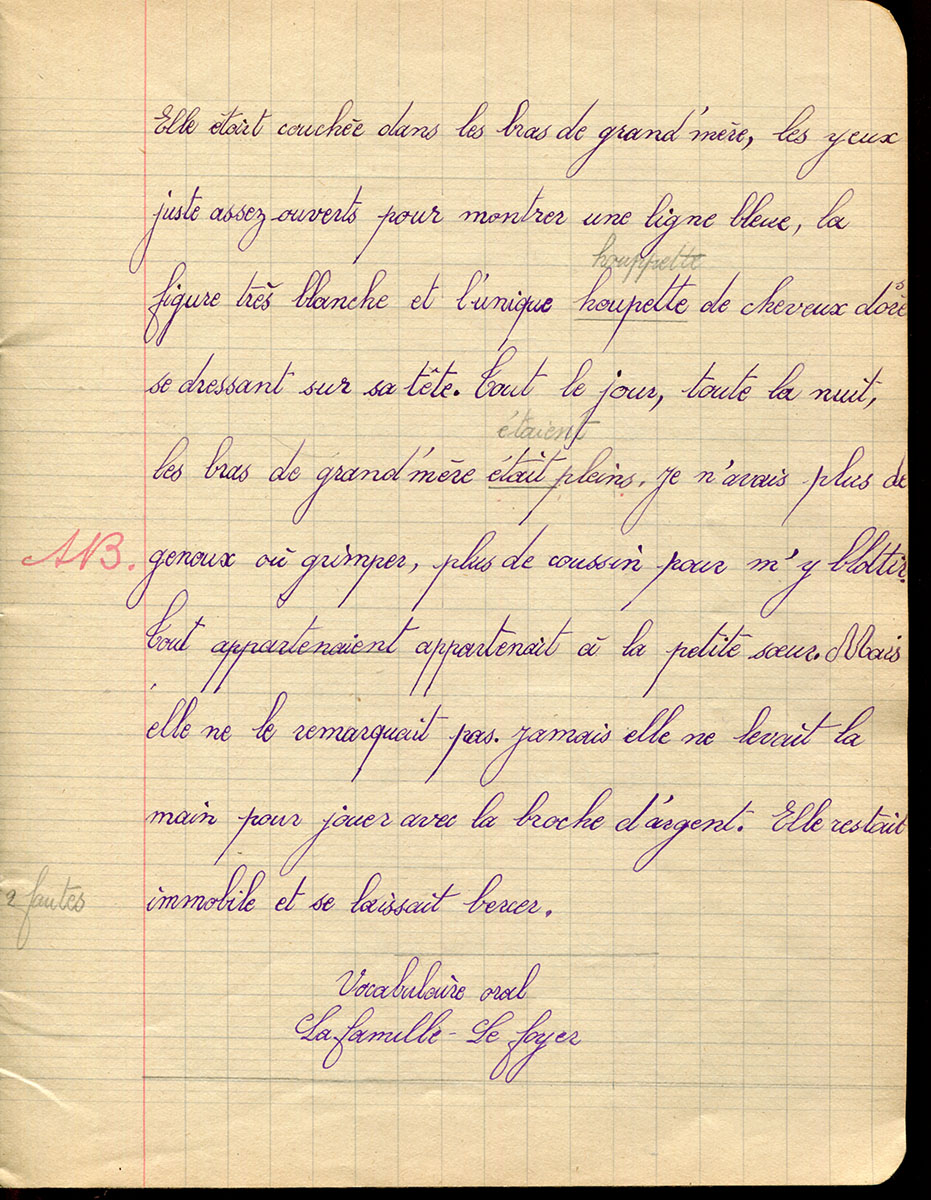 Elle était couchée dans les bras de grand'mère, les yeux
juste assez ouverts pour montrer une ligne bleue, la
houppette
figure très blanche et l'unique houpette de cheveux dorés
se dressant sur sa tête. Tout le jour, toute la nuit,
étaient
les bras de grand'mère était pleins. Je n'avais plus de
AB. genoux où grimper, plus de coussin pour m'y blottir.
Tout appartenaient appartenait à la petite sœur. Mais
elle ne le remarquait pas. Jamais elle ne levait la
main pour jouer avec la broche d'argent. Elle restait
2 fautes immobile et se laissait bercer.
Vocabulaire oral
La famille - Le foyer